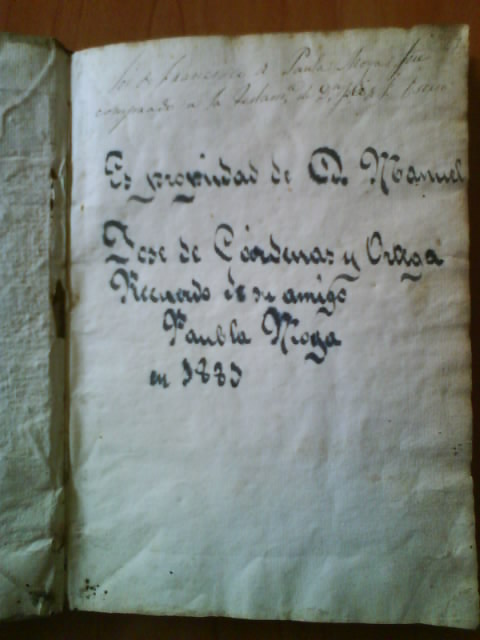 de Francisco Paula Moya fue
comprado a la testamª de Dⁿ
Es propiedad de Dn Manuel
Jose de Cárdenas y Ortega
Recuerdo de su amigo
Paubla Moya
en 1881